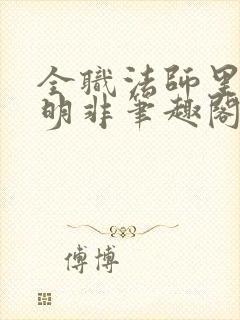 全職法師里
明非筆趣閣
傅博